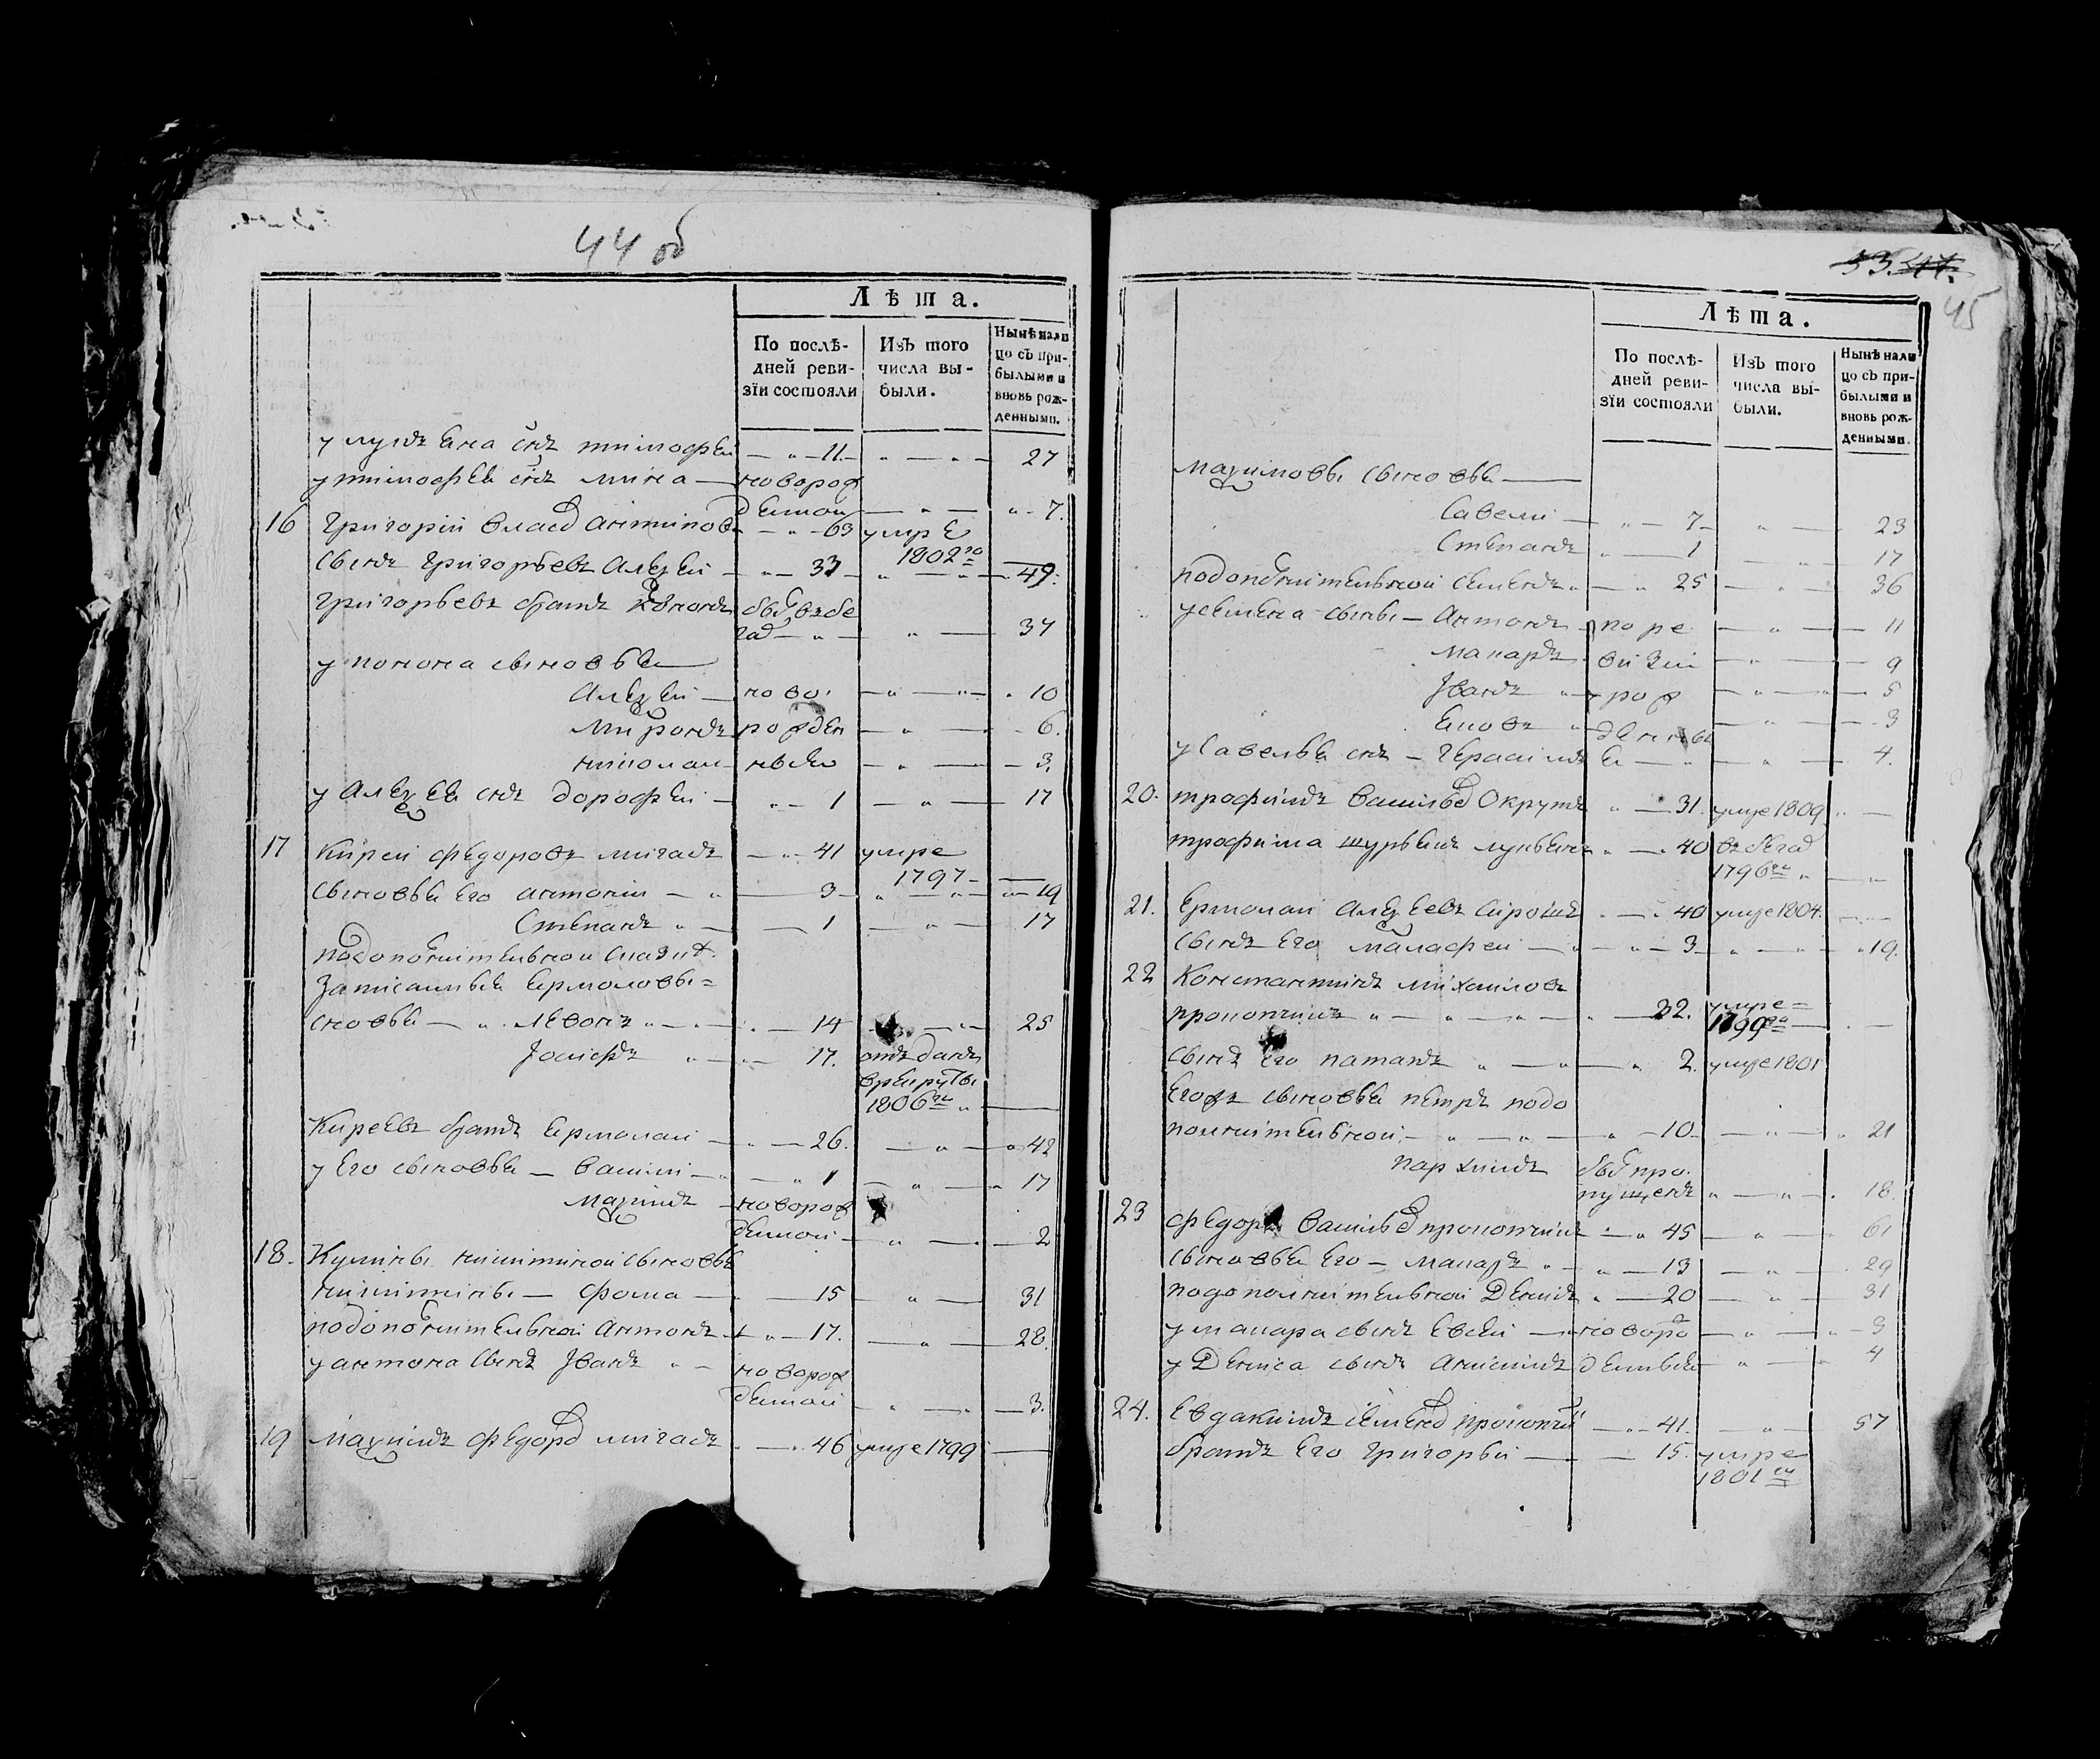 44 об
Лѣта.
По послѣ-
дней реви-
зїи состояли
Изъ того
числа вы-
были.
Нынѣ нали
цо съ при-
былыми и
вновь рож-
денными.
у лукьена снъ тимофеи 11 27
у тимофея снъ мина новорож
денои 7.
16 Григорий Власд Антипов 63 умре
1802го
сынъ Григорьевъ Алексеи 33 49.
Григорьевъ братъ Кононъ был в бе
гах 37
у конона сыновья
Алексеи ново 10
Миронъ рожден 6.
николаи ные 3.
у Алексея снъ дорофеи 1 17
17 Кирей Федоровъ мигалъ 41 умре
1797
сыновья его антонии 3 19
Степанъ 1 17
по дополнителной сказке
записанные ермоловы
сновья Левонъ 14 25
Іосифъ 17. отъданъ
в рекруты
1806го
Киреевъ братъ ермолаи 26. 42
у Его сыновья Василии 1 17
Максимъ новорож
денои 2
18. Кузмины никитиной сыновья
никитины Фома 15 31
по дополнителной Антонъ 17. 28.
у антона сынъ Іванъ новорож
денои 3.
19 Максимъ Федорд мигалъ 46 умре 1799
45
Лѣта.
По послѣ-
дней реви-
зїи состояли
Изъ того
числа вы-
были.
Нынѣ нали
цо съ при-
былыми и
вновь рож-
денными.
Максимовы сыновья
Савели 7 23
Степанъ 1 17
по дополнителной Семенъ 25 36
у семена сыны Антонъ по ре 11
Макаръ визии 9
Іванъ рож 5
Яковъ денны 3
у Савелья снъ Герасимъ е 4.
20. трофимъ Василд Окрут 31. умре 1809
трофима шурьенъ лукьенъ 40 в бегах
1796го
21. Ермолаи Алексеевъ Сирот 40 умре 1804.
сынъ Его малафеи 3 19.
22 Константинъ михаиловъ
прокопчинъ 22. умре
1799го
сынъ Его потапъ 2. умре 1801
Егожъ сыновья петръ подо
полнителной 10 21
пархимъ был про
пущенъ 18.
23 Федоръ Василд прокопчин 45 61
сыновья Его Макаръ 13 29
по дополнителной Денисъ 20 31
у макара сынъ Евсеи новоро 3
у Дениса сынъ Анисимъ денные 4
24. Евдакимъ семенд прокопчи 41. 57
братъ Его Григорьи 15. умре
1801го